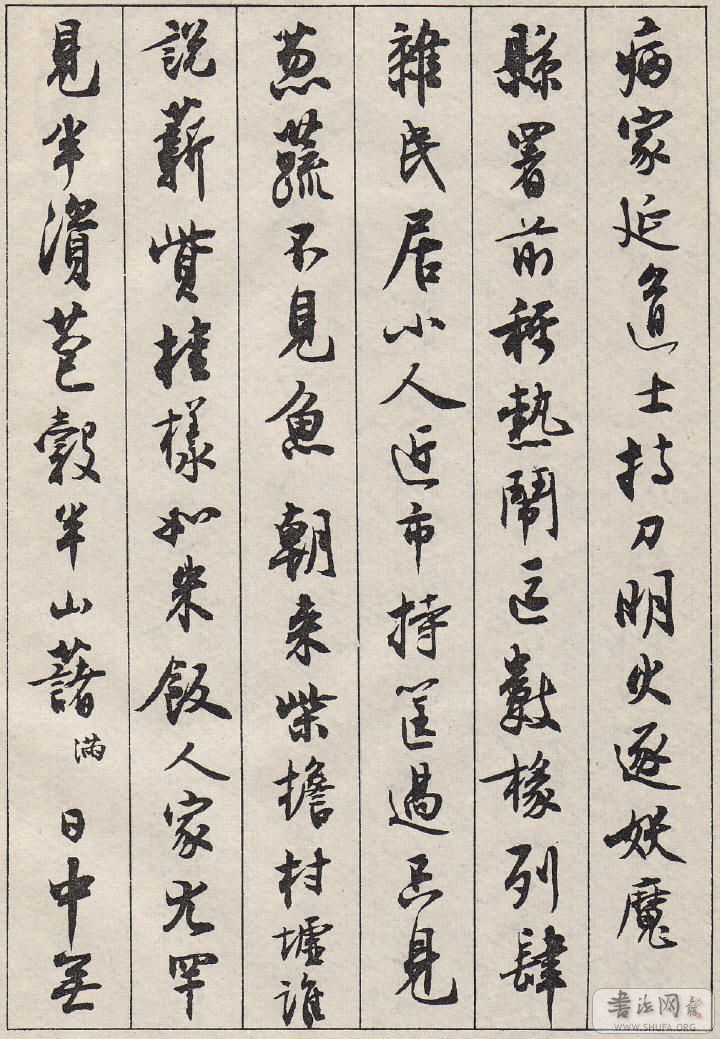 病家延道士持刀明火逐妖魔
縣署前稱熱鬧區數椽列肆
雜民居小人近市持筐過只見
葱蔬不見魚 朝来柴擔村墟誰
說薪貲桂樣如米飯人家尤罕
見半苞穀半山藷 满 日中無
书法网
WWW.SHUFA.ORG